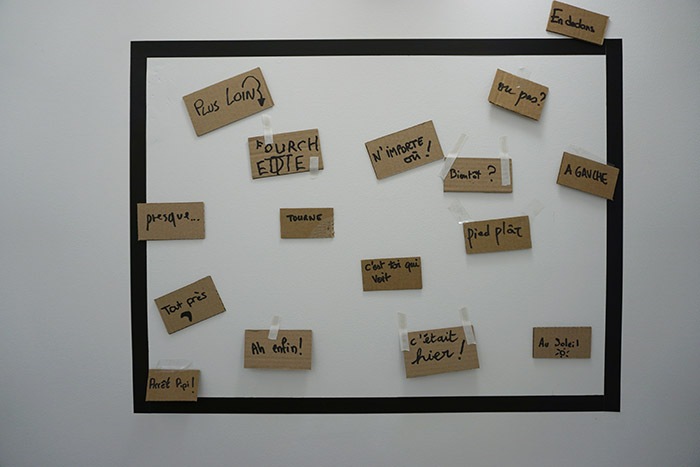 En dedans
PLUS LOIN
ou pas?
FOURCH
ETTE
N'IMPORTE
OÙ!
Bientôt ?
A GAUCHE
presque...
TOURNE
pied plât
c'est toi qui
Voit
Tout près
Ah enfin!
c'était
hier!
Au Soleil
Arrêt Pipi!